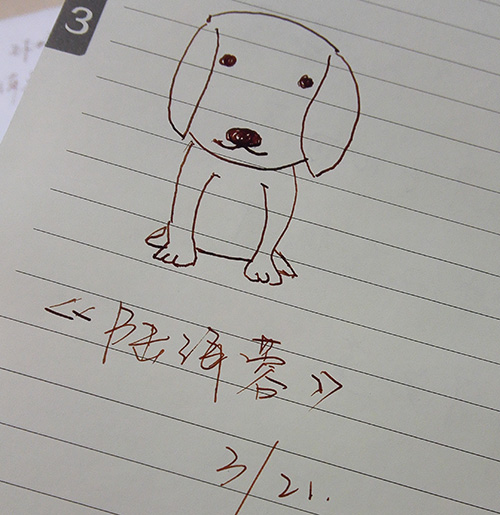 3
《陆蓉》
3/21.